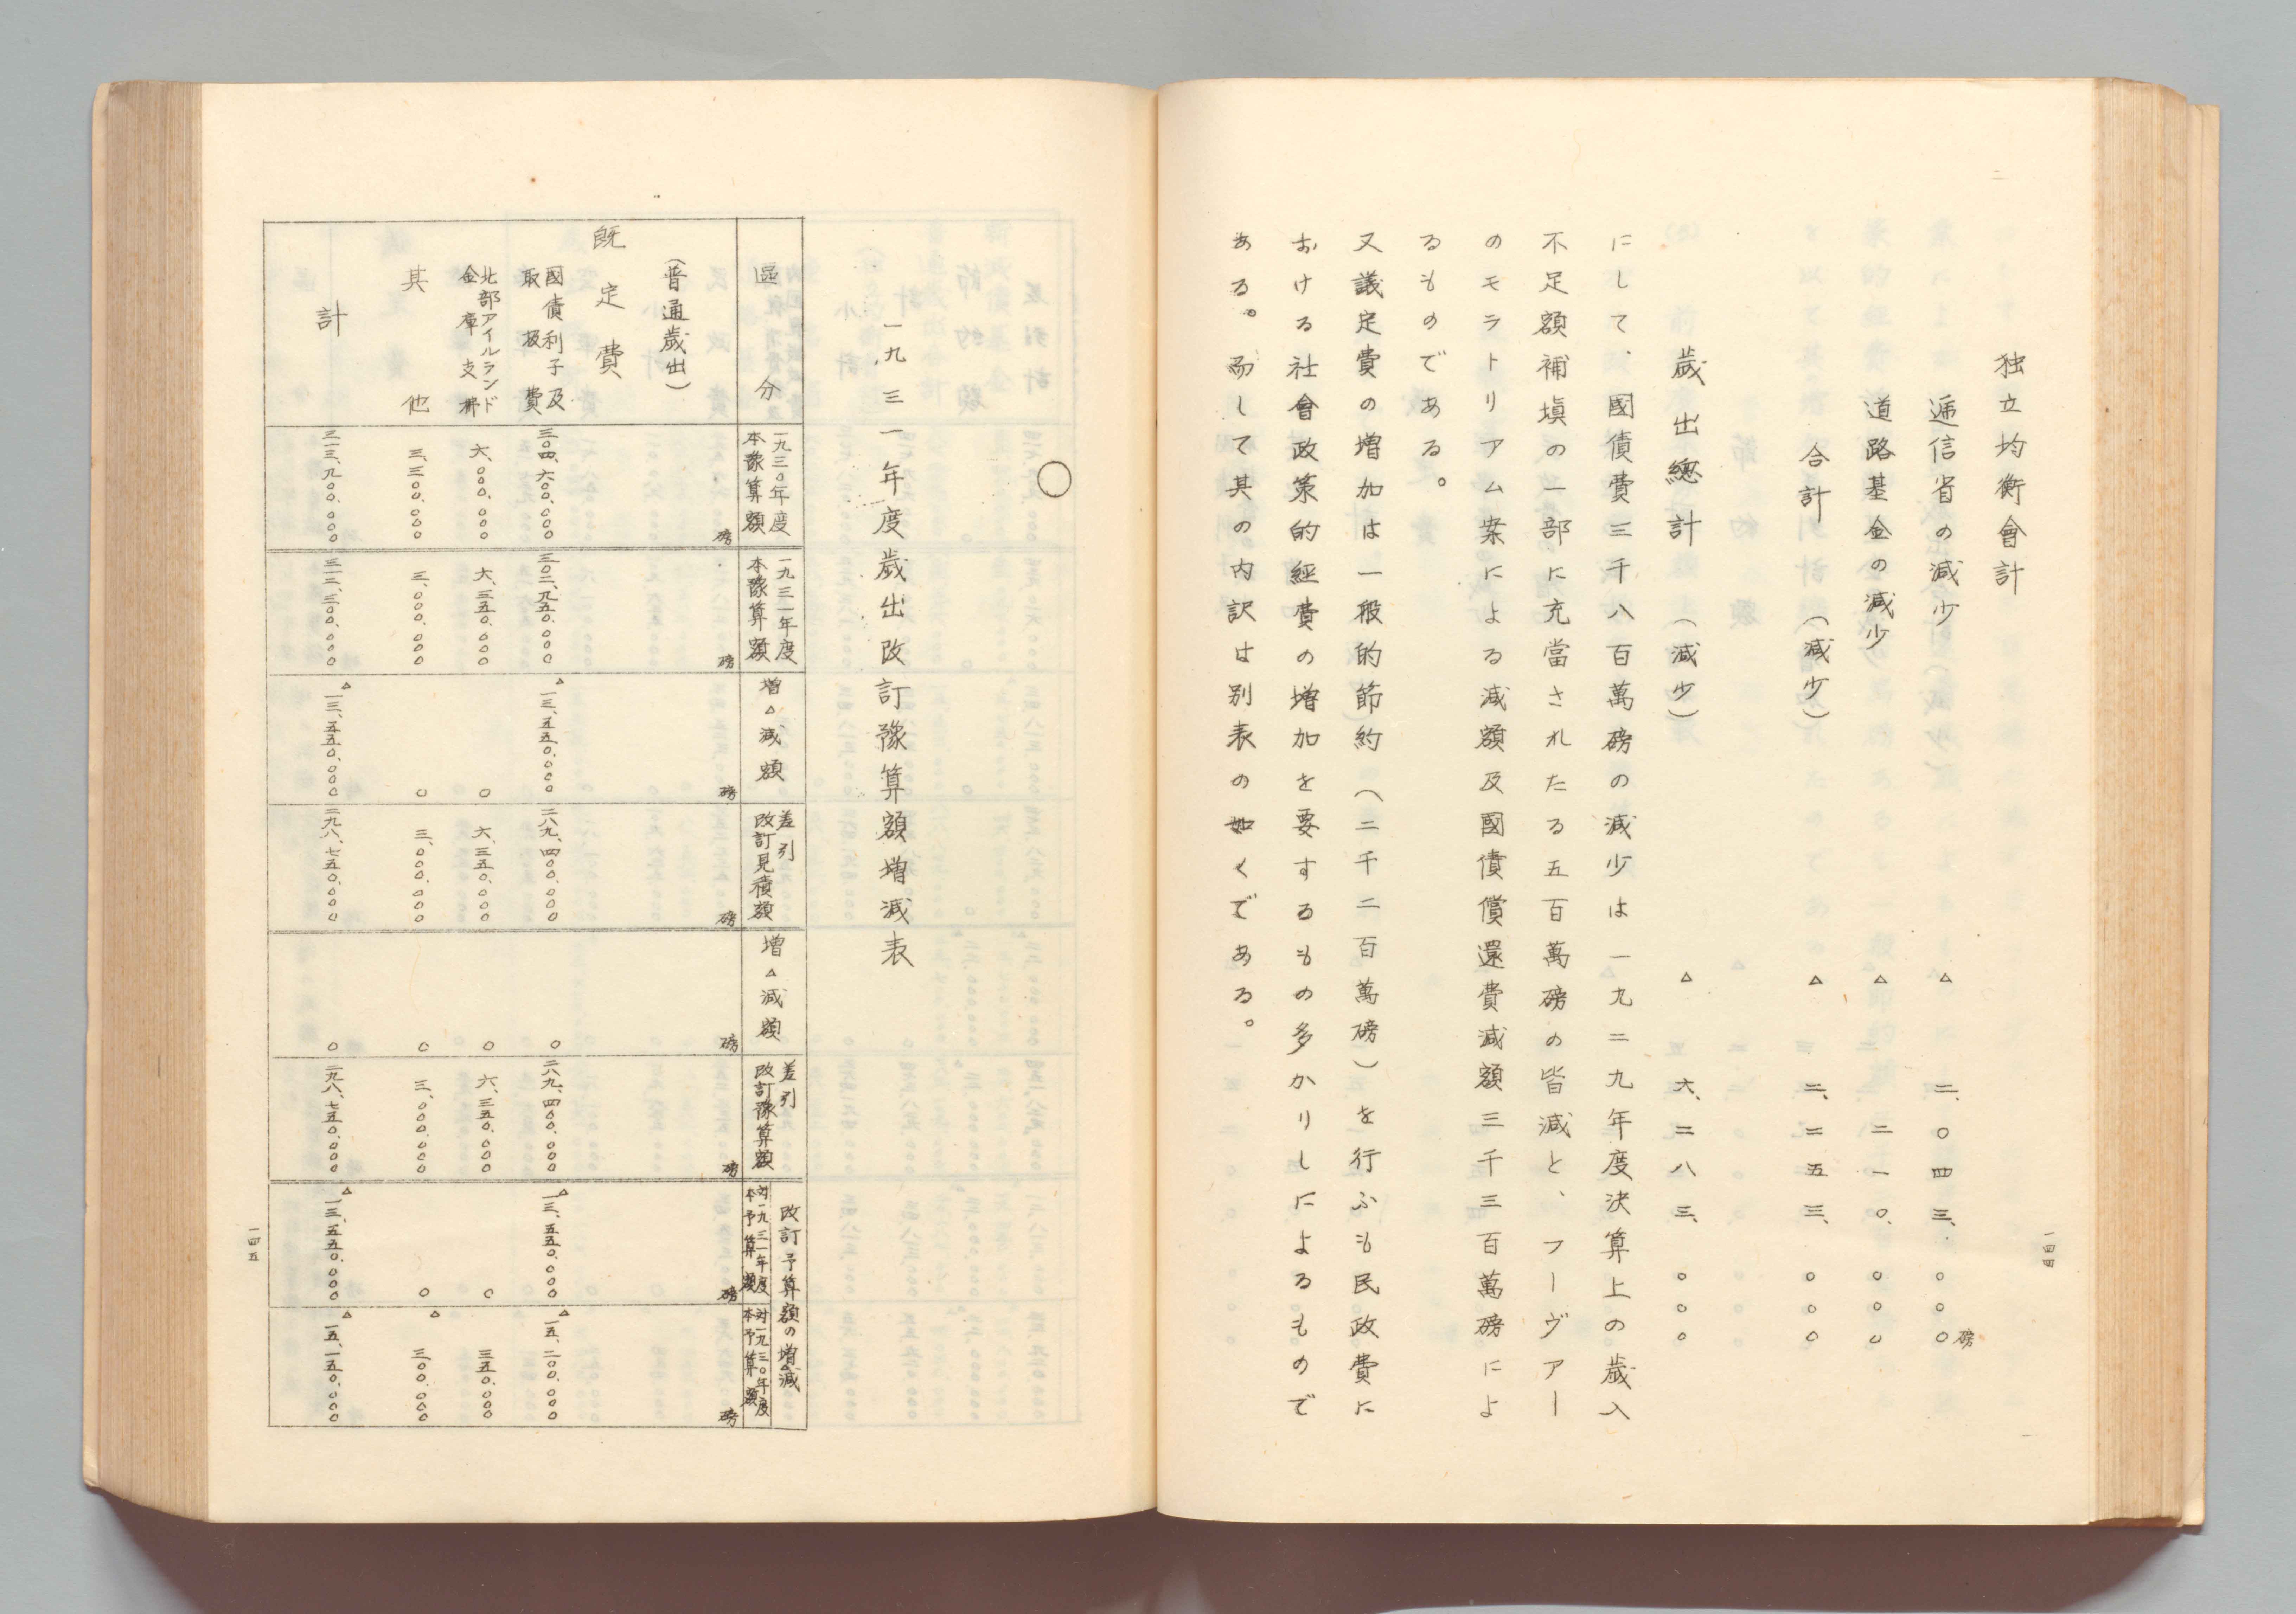 独立均衡會計
遞信省の減少 △ 二、〇四三、〇〇〇磅
道路基金の減少 △ 二一〇、〇〇〇
合計 (減少) △ 二、二五三、〇〇〇
歳出總計 (減少) △ 六、二八三、〇〇〇
にして、國債費三千八百萬磅の減少は一九二九年度決算上の歳入
不足額補塡の一部に充當されたる五百萬磅の皆減と、フーヴアー
のモラトリアム案による減額及國債償還費減額三千三百萬磅によ
るものである。
又議定費の増加は一般的節約(二千二百萬磅)を行ふも民政費に
おける社會政策的經費の増加を要するもの多かりしによるもので
ある。而して其の内訳は別表の如くである。
一四四
一九三一年度歳出改訂豫算額増減表
區分 一九三〇年度本豫算額 一九三一年度本豫算額 増△減額 差引改訂見積額 増△減額 差引改訂豫算額 改訂予算額の増△減 対一九三一年度本予算額 対一九三〇年度本予算額
磅 磅 磅 磅 磅 磅 磅 磅
(普通歳出)
既定費
國債利子及取扱費 三〇四、六〇〇、〇〇〇 三〇二、九五〇、〇〇〇 △一三、五五〇、〇〇〇 二八九、四〇〇、〇〇〇 〇 二八九、四〇〇、〇〇〇 △一三、五五〇、〇〇〇 △一五、二〇〇、〇〇〇
北部アイルランド金庫支拂 六、〇〇〇、〇〇〇 六、三五〇、〇〇〇 〇 六、三五〇、〇〇〇 〇 六、三五〇、〇〇〇 〇 三五〇、〇〇〇
其他 三、三〇〇、〇〇〇 三、〇〇〇、〇〇〇 〇 三、〇〇〇、〇〇〇 〇 三、〇〇〇、〇〇〇 〇 △三〇〇、〇〇〇
計 三一三、九〇〇、〇〇〇 三一二、三〇〇、〇〇〇 △一三、五五〇、〇〇〇 二九八、七五〇、〇〇〇 〇 二九八、七五〇、〇〇〇 △一三、五五〇、〇〇〇 △一五、一五〇、〇〇〇
一四五